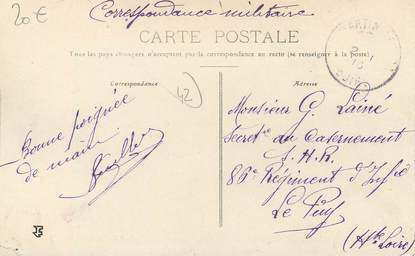 20€
Correspondance militaire
CARTE POSTALE
Tous les pays étrangers n'acceptent pas la correspondance au recto (se renseigner à la poste)
Correspondance
Adresse
42
Bonne poignée
de main
Monsieur G. Lainé
Secret^re au Casernement
S.H.R.
86e Régiment d'Inf^ie
Le Puy
(Hte Loire)